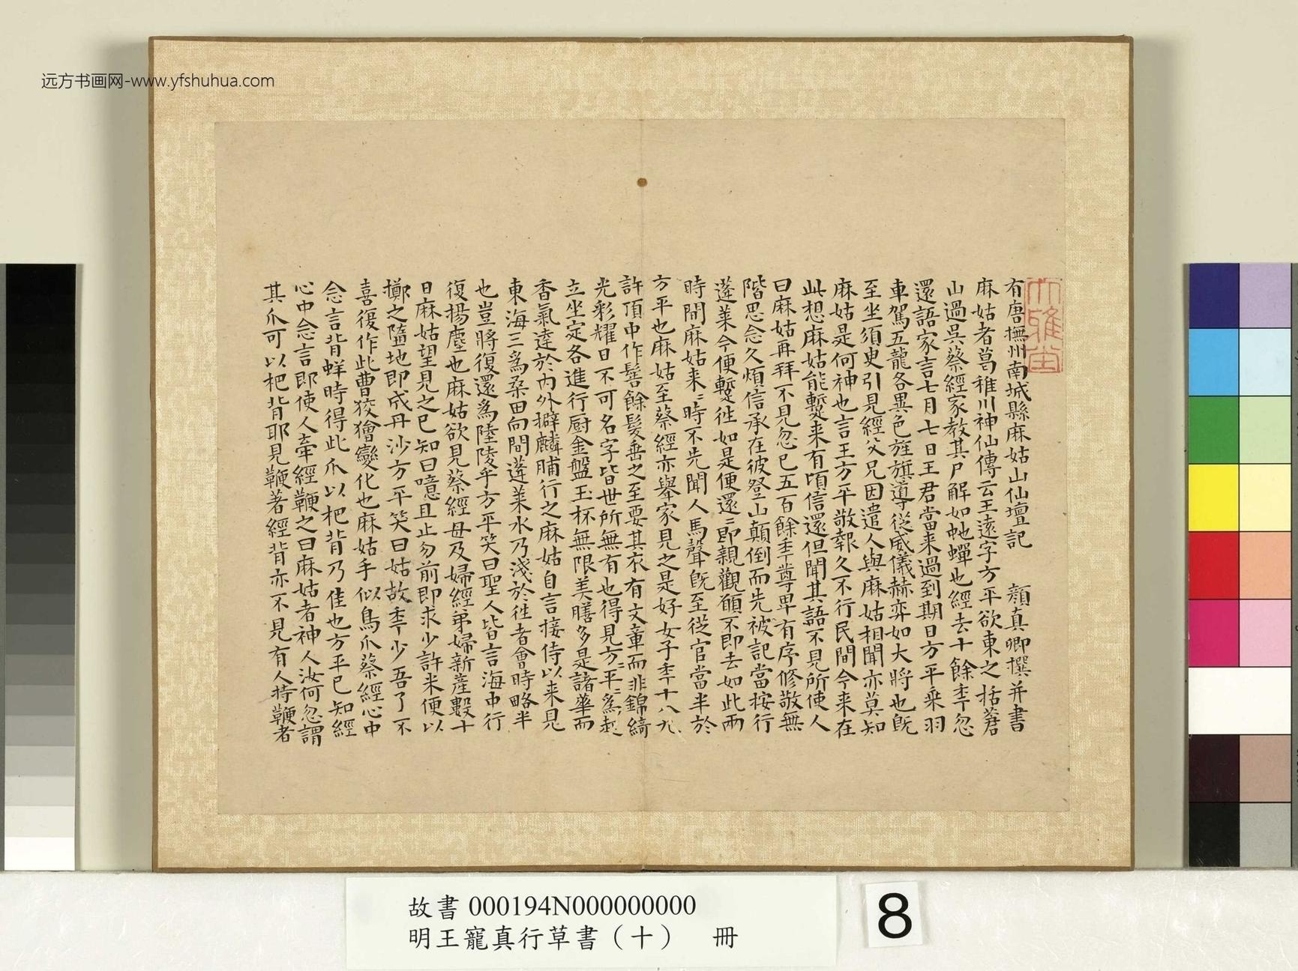 远方书画网-www.yfshuhua.com
大雅堂
有唐撫州南城縣麻姑山仙壇記 顏真卿撰并書
麻姑者葛稚川神仙傳云王遠字方平欲東之括蒼
山過吳蔡經家教其尸解如虵蟬也經去十餘年忽
還語家言七月七日王君當来過到期日方平乘羽
車駕五龍各異色旌旗導從威儀赫弈如大將也既
至坐須臾引見經父兄因遣人與麻姑相聞亦莫知
麻姑是何神也言王方平敬報久不行民間今来在
此想麻姑能蹔来有頃信還但聞其語不見所使人
曰麻姑再拜不見忽已五百餘年尊卑有序修敬無
階思念久煩信承在彼登山顛倒而先被記當按行
蓬莱今便蹔往如是便還還即親觀願不即去如此兩
時間麻姑来来時不先聞人馬聲既至從官當半於
方平也麻姑至蔡經亦舉家見之是好女子年十八九
許頂中作髻餘髮垂之至要其衣有文章而非錦綺
光彩耀日不可名字皆世所無有也得見方平方平為起
立坐定各進行厨金盤玉杯無限美膳多是諸華而
香氣達於內外擗麟脯行之麻姑自言接侍以来見
東海三為桑田向間蓬莱水乃淺於往者會時略半
也豈將復還為陸陵乎方平笑曰聖人皆言海中行
復揚塵也麻姑欲見蔡經母及婦經弟婦新產數十
日麻姑望見之已知曰噫且止勿前即求少許米便以
擲之墮地即成丹沙方平笑曰姑故年少吾了不
喜復作此曹狡獪變化也麻姑手似鳥爪蔡經心中
念言背蛘時得此爪以杷背乃佳也方平已知經
心中念言即使人牽經鞭之曰麻姑者神人汝何忽謂
其爪可以杷背耶見鞭著經背亦不見有人持鞭者
故書 000194N000000000
明王寵真行草書（十） 冊
8